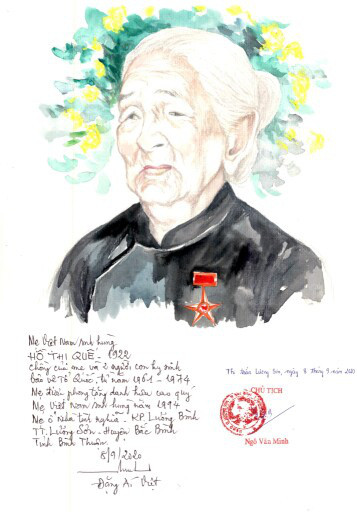 Mẹ Việt Nam anh hùng
HỒ THỊ QUÊ - 1922
Chồng của mẹ và 2 người con hy sinh
bảo vệ Tổ Quốc, từ năm 1961 - 1974
Mẹ được phong tặng danh hiệu cao quý
Mẹ Việt Nam anh hùng năm 1994
Mẹ ở nhà tình nghĩa - KP. Lương Bình
TT. Lương Sơn - Huyện Bắc Bình
Tỉnh Bình Thuận.
8/9/2020
Đặng Ái Việt
Thị trấn Lương Sơn, ngày 8 tháng 9 năm 2020
CHỦ TỊCH
Ngô Văn Minh